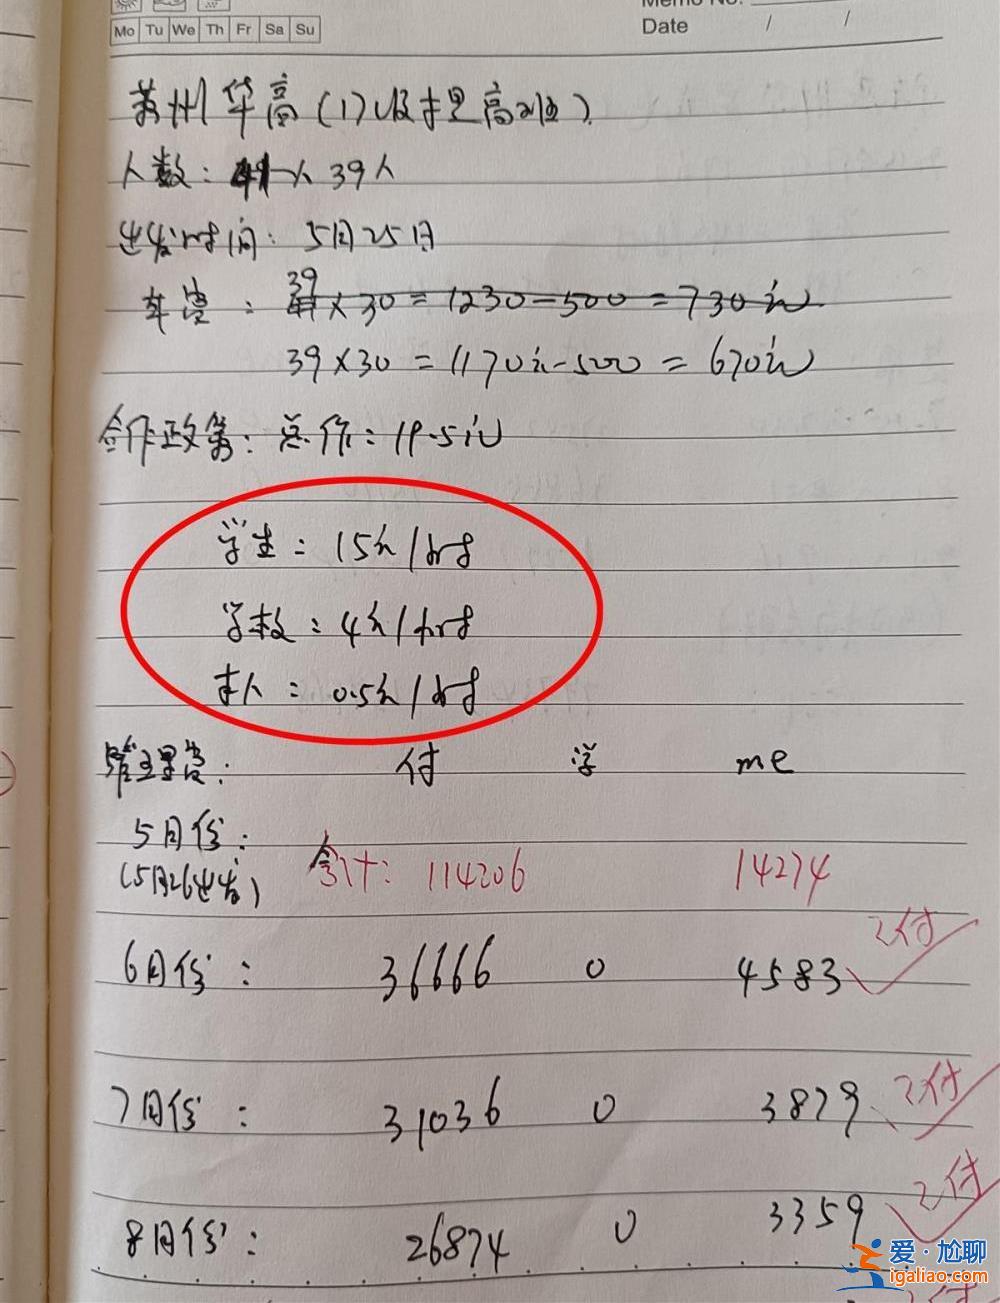 Memo No.
Mo Tu We Th Fr Sa Su
Date / /
苏州华高(17级护理高班)
人数: 41人 39人
出发时间: 5月25日
39
车费: 41×30=1230-500=730元
39×30=1170元-500=670元
合作政策: 总价: 19.5元
学生: 15元/时
学校: 4元/时
本人: 0.5元/时
管理费: 付 学 me
5月份:
(5月26出发) 合计: 114206 14274
6月份: 36666 0 4583 已付
7月份: 31036 0 3879 已付
8月份: 26874 0 3359 已付
爱·尬聊
igaliao.com